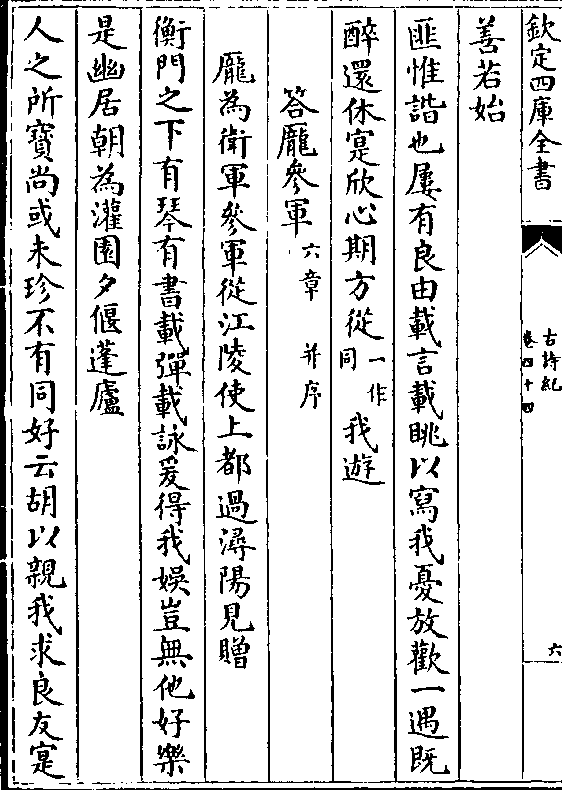 欽定四庫全書
古詩紀
卷四十四
六
善若始
匪惟諧也屢有良由載言載眺以寫我憂放歡一遇既
醉還休寔欣心期方從一作同我遊
答龐參軍六章 并序
龐為衛軍參軍從江陵使上都過潯陽見贈
衡門之下有琴有書載彈載詠爰得我娛豈無他好樂
是幽居朝為灌園夕偃蓬廬
人之所寶尚或未珍不有同好云胡以親我求良友寔